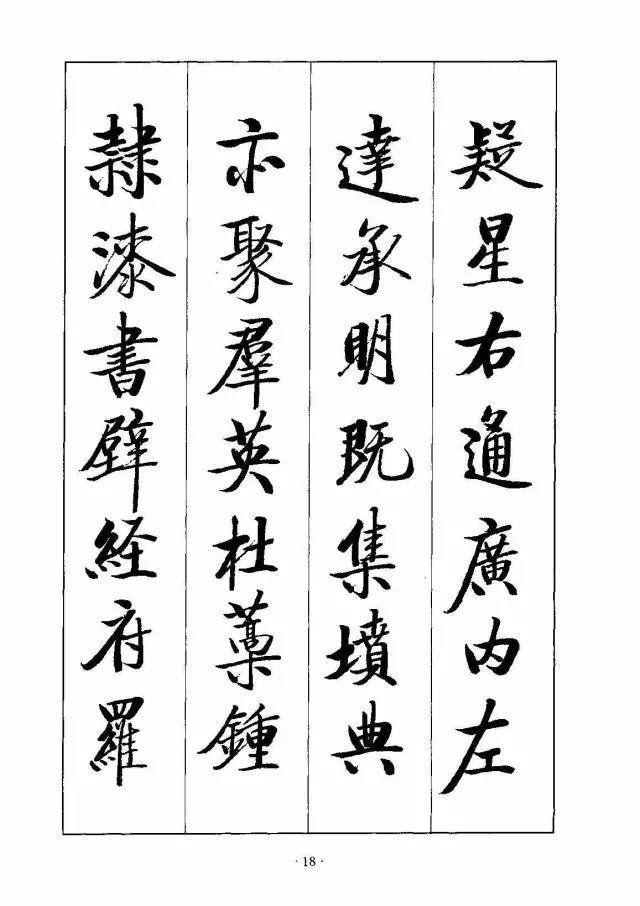 疑星右通廣内左
達承明既集墳典
亦聚羣英杜藁鍾
隸漆書壁経府羅
· 18 ·